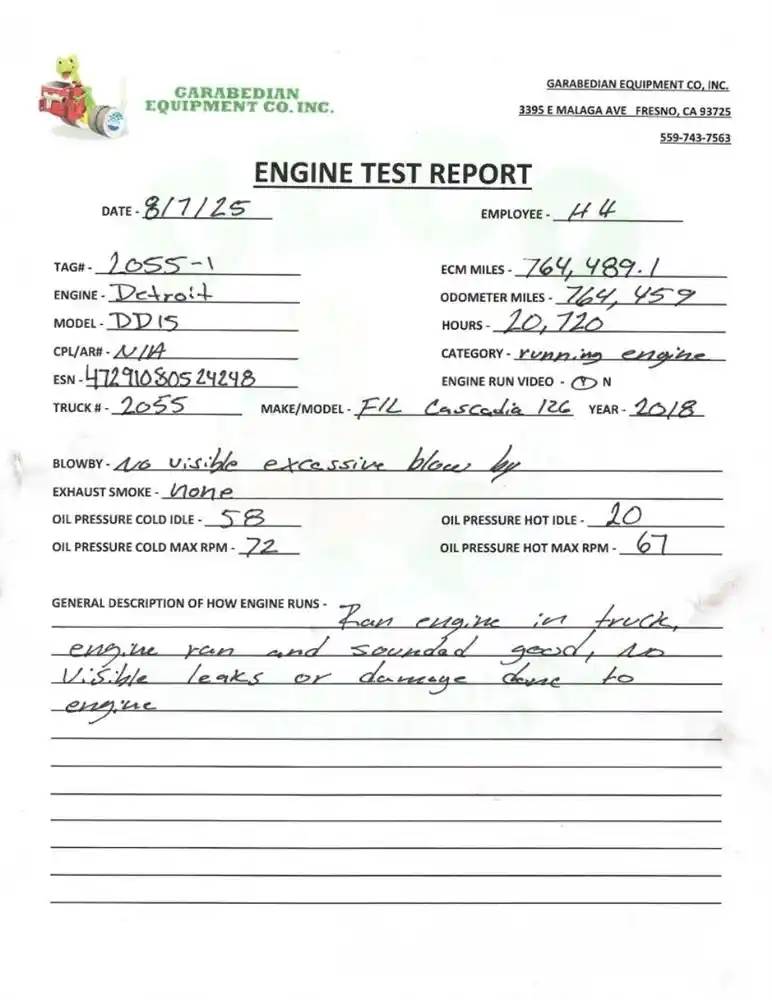 GARABEDIAN
EQUIPMENT CO. INC.
GARABEDIAN EQUIPMENT CO, INC.
3395 E MALAGA AVE FRESNO, CA 93725
559-743-7563
ENGINE TEST REPORT
DATE - 8/7/25 EMPLOYEE - H4
TAG# - 2055-1 ECM MILES - 764,489.1
ENGINE - Detroit ODOMETER MILES - 764,459
MODEL - DD15 HOURS - 20,720
CPL/AR# - N/A CATEGORY - running engine
ESN - 472910S0524248 ENGINE RUN VIDEO - Y N
TRUCK # - 2055 MAKE/MODEL - F/L Cascadia 126 YEAR - 2018
BLOWBY - No visible excessive blow by
EXHAUST SMOKE - none
OIL PRESSURE COLD IDLE - 58 OIL PRESSURE HOT IDLE - 20
OIL PRESSURE COLD MAX RPM - 72 OIL PRESSURE HOT MAX RPM - 67
GENERAL DESCRIPTION OF HOW ENGINE RUNS - Ran engine in truck,
engine ran and sounded good, no
visible leaks or damage done to
engine